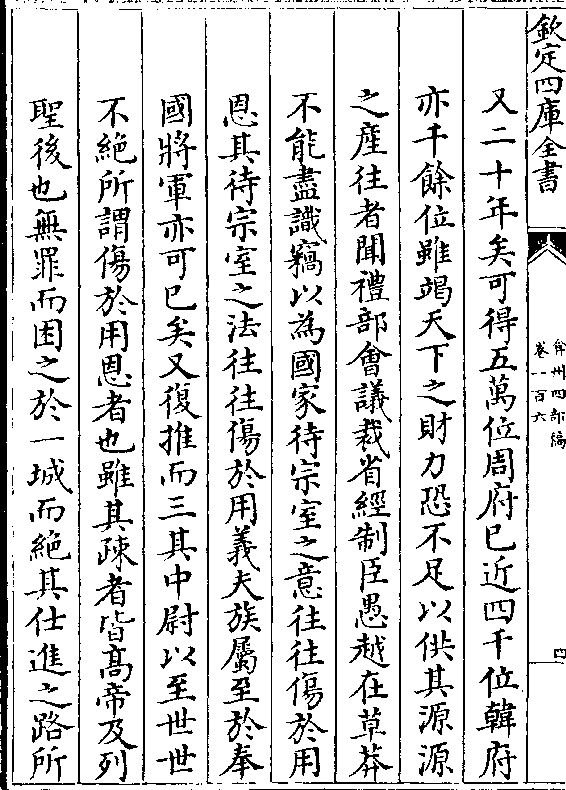 欽定四庫全書
弇州四部稿
卷一百六
四
又二十年矣可得五萬位周府已近四千位韓府
亦千餘位雖竭天下之財力恐不足以供其源源
之産往者聞禮部會議裁省經制臣愚越在草莽
不能盡識竊以為國家待宗室之意往往傷於用
恩其待宗室之法往往傷於用義夫族屬至於奉
國將軍亦可已矣又復推而三其中尉以至世世
不絶所謂傷於用恩者也雖其疎者皆髙帝及列
聖後也無罪而困之於一城而絶其仕進之路所